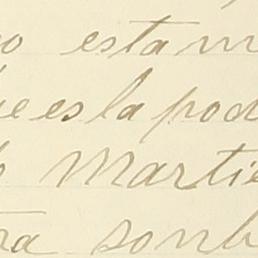 o estam
e es la pod
o Martie
tra somb